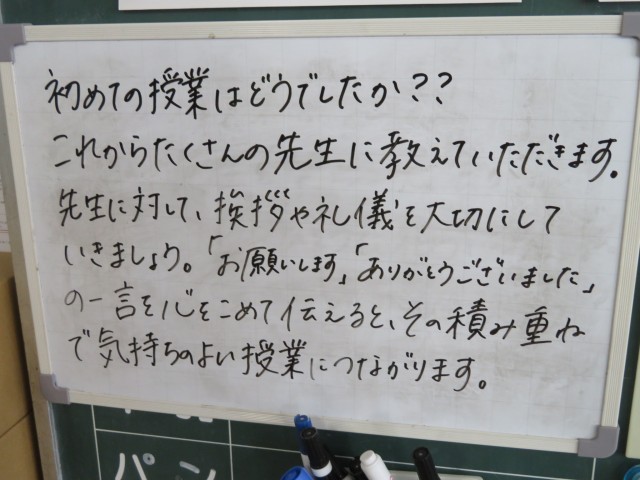 初めての授業はどうでしたか??
これからたくさんの先生に教えていただきます。
先生に対して、挨拶や礼儀を大切にして
いきましょう。「お願いします」「ありがとうございました」
の一言を心をこめて伝えると、その積み重ね
で気持ちのよい授業につながります。
パン